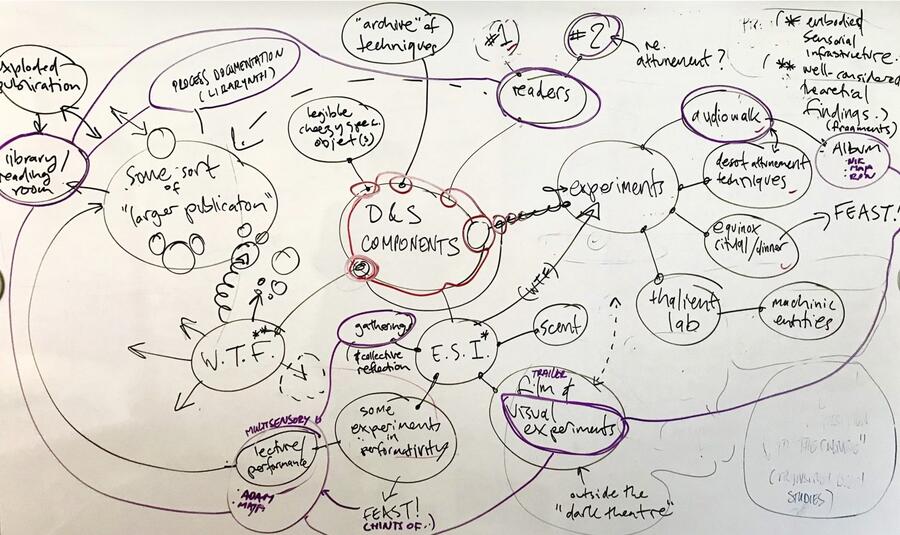 "archive" of
techniques
#1
#2
re.
attunement?
(* embodied
sensorial
infrastructure.
(** well-considered
theoretical
findings.)
(fragments)
exploded
publication
PROCESS DOCUMENTATION
(LIBRARYNTH)
readers
legible
cheesy spec.
objet(s)
audiowalk
ALBUM
: NIK
: MAJA
: RON
library/
reading
room
some sort
of
"larger publication"
D&S
COMPONENTS
experiments
desot attunement
tenriques
FEAST!
equinox
ritual/dinner
(WTF)
thalient
lab
machinic
entities
W.T.F.**
gathering
& collective
reflection
E.S.I.*
scent
TRAILER
film &
visual
experiments
some
experiments
in
performativity
MULTISENSORY
lecture/
performance
: ADAM
: MAJA
FEAST!
(HINTS OF..)
outside the
"dark theatre"
STUDIES)